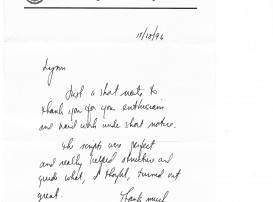 11/18/96
Lynn
Just a short note to
thank you for your enthusiasm
and hard work under short notice.
The scripts were perfect
and really helped structure and
guide what, I thought, turned out
great.
Thanks much